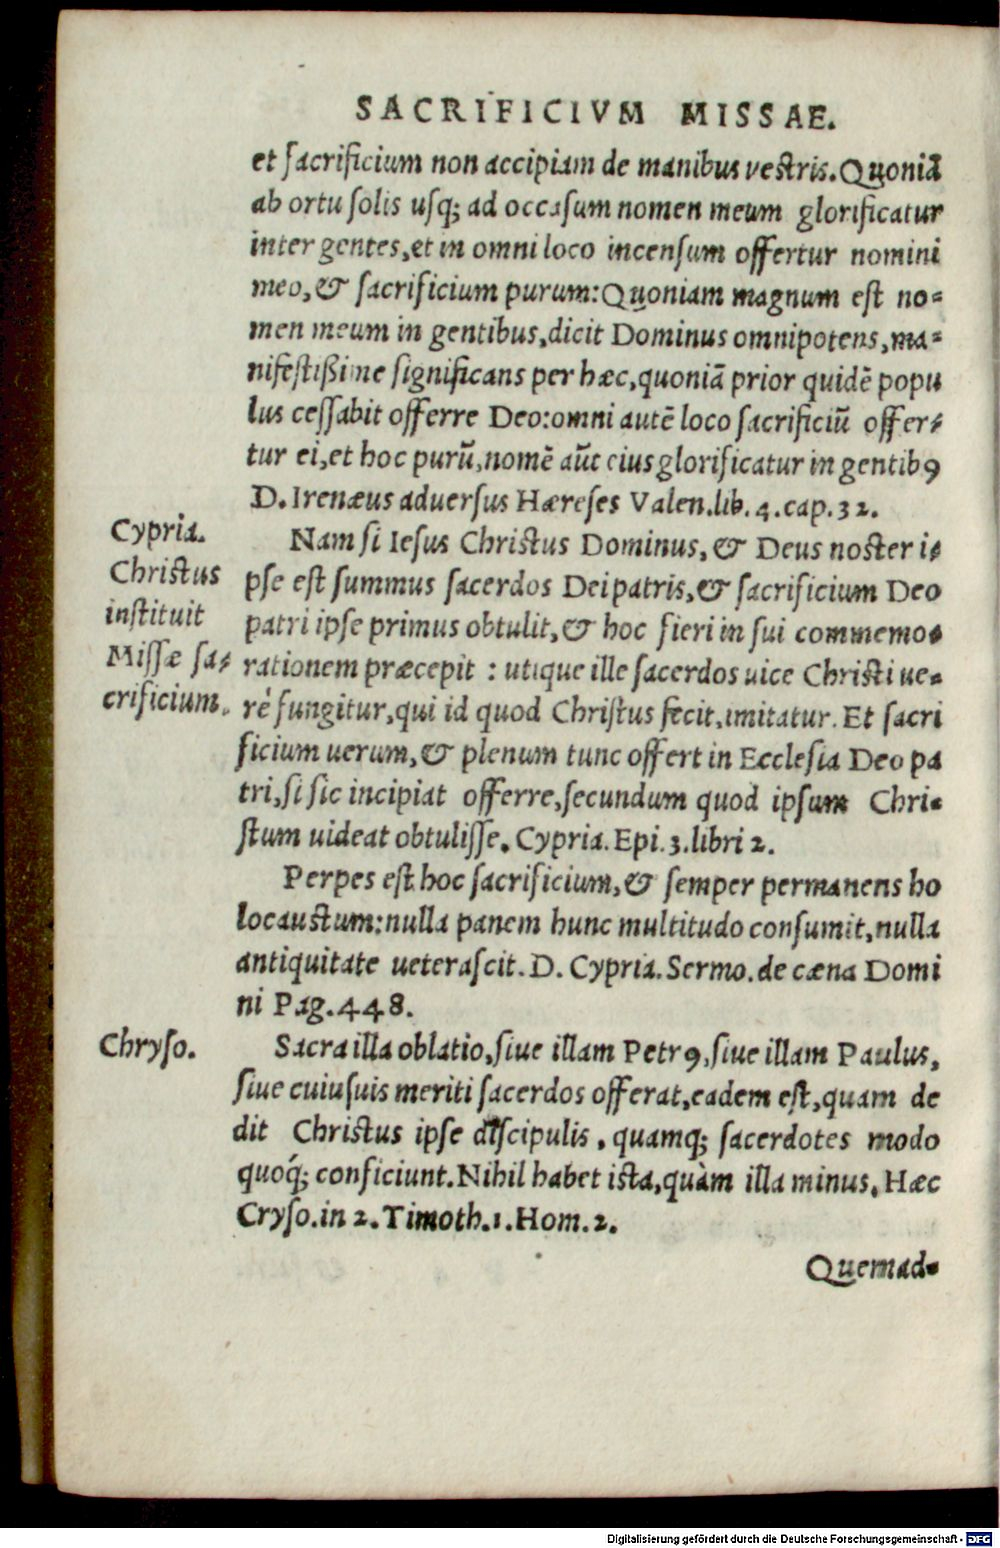 SACRIFICIVM MISSAE.
et ſacrificium non accipiam de manibus veſtris. Quoniā
ab ortu ſolis uſq; ad occaſum nomen meum glorificatur
inter gentes, et in omni loco incenſum offertur nomini
meo, & ſacrificium purum: Quoniam magnum eſt no-
men meum in gentibus, dicit Dominus omnipotens, ma-
nifeſtißime ſignificans per hæc, quoniā prior quidē popu
lus ceſſabit offerre Deo: omni autē loco ſacrificiū offer-
tur ei, et hoc purū, nomē aūt eius glorificatur in gentibꝰ
D. Irenæus aduerſus Hæreſes Valen. lib. 4. cap. 32.
Cypria.
Chriſtus
inſtituit
Miſſæ ſa-
crificium.
Nam ſi Ieſus Chriſtus Dominus, & Deus noſter i-
pſe eſt ſummus ſacerdos Dei patris, & ſacrificium Deo
patri ipſe primus obtulit, & hoc fieri in ſui commemo-
rationem præcepit : utique ille ſacerdos uice Chriſti ue-
rè fungitur, qui id quod Chriſtus fecit, imitatur. Et ſacri
ficium uerum, & plenum tunc offert in Eccleſia Deo pa
tri, ſi ſic incipiat offerre, ſecundum quod ipſum Chri-
ſtum uideat obtuliſſe. Cypria. Epi. 3. libri 2.
Perpes eſt hoc ſacrificium, & ſemper permanens ho
locauſtum: nulla panem hunc multitudo conſumit, nulla
antiquitate ueteraſcit. D. Cypria. Sermo. de cæna Domi
ni Pag. 448.
Chryſo.
Sacra illa oblatio, ſiue illam Petrꝰ, ſiue illam Paulus,
ſiue cuiuſuis meriti ſacerdos offerat, eadem eſt, quam de
dit Chriſtus ipſe diſcipulis, quamq; ſacerdotes modo
quoq́; conficiunt. Nihil habet iſta, quàm illa minus. Hæc
Cryſo. in 2. Timoth. 1. Hom. 2.
Quemad-
Digitalisierung gefördert durch die Deutsche Forschungsgemeinschaft - DFG